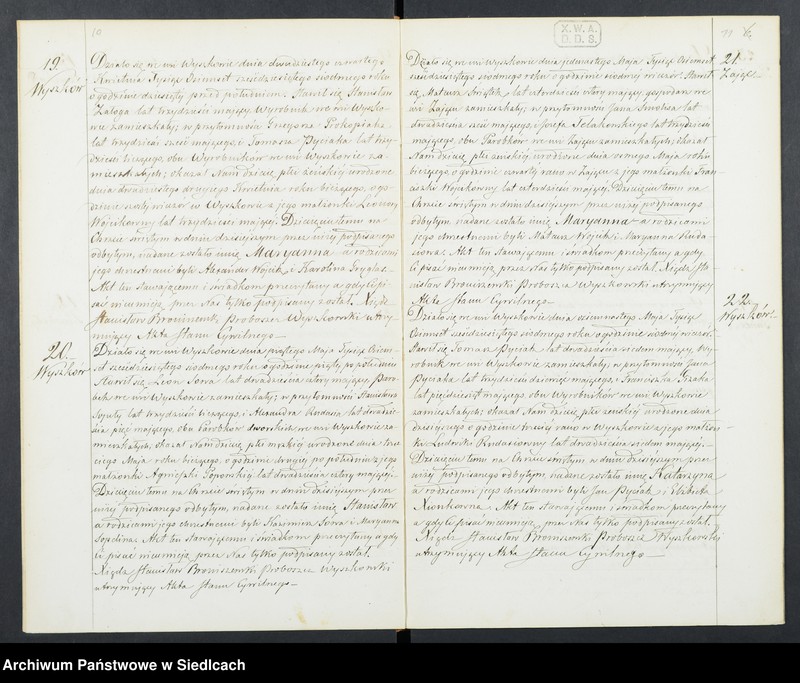 10
19.
Wyszków
Działo się we wsi Wyszkowie dnia dwudziestego czwartego
Kwietnia Tysiąc Ośmset sześćdziesiątego siódmego roku
o godzinie dziesiątej przed południem. Stawił się Stanisław
Załoga lat trzydzieści mający Wyrobnik we wsi Wyszko-
wie zamieszkały; w przytomności Grzegorza Prokopiaka
lat trzydzieści sześć mającego, i Tomasza Pyciaka lat trzy-
dzieści liczącego, obu Wyrobników we wsi Wyszkowie za-
mieszkałych; okazał Nam dziecię płci żeńskiej urodzone
dnia dwudziestego drugiego Kwietnia roku bieżącego, o go-
dzinie szóstej wieczór w Wyszkowie z jego małżonki
Wójcikowny lat trzydzieści mającej. Dziecięciu temu na
Chrzcie świętym w dniu dzisiejszym przez niżej podpisanego
odbytym, nadane zostało imię Maryanna a rodzicami
jego chrzestnemi byli Alexander Wójcik i Karolina
Akt ten stawającemu i świadkom przeczytany a gdy ci pi-
sać nieumieją przez Nas tylko podpisany został. Xiądz
Stanisław Proboszcz Wyszkowski utrzy-
mujący Akta Stanu Cywilnego
20.
Wyszków
Działo się we wsi Wyszkowie dnia piątego Maja Tysiąc Ośmse-
t sześćdziesiątego siódmego roku o godzinie piątej po południu
Stawił się Leon Sowa lat dwadzieścia cztery mający Paro-
bek we wsi Wyszkowie zamieszkały; w przytomności Stanisława
lat trzydzieści liczącego, i Alexandra Rudasia lat dwadzie-
ścia pięć mającego, obu Parobków dworskich we wsi Wyszkowie za-
mieszkałych, okazał Nam dziecię płci męzkiej urodzone dnia trze-
ciego Maja roku bieżącego, o godzinie drugiej po południu z jego
małżonki Agnieszki lat dwadzieścia cztery mającej.
Dziecięciu temu na Chrzcie świętym w dniu dzisiejszym przez
niżej podpisanego odbytym, nadane zostało imię Stanisław
a rodzicami jego chrzestnemi byli Kazimierz Sowa i Maryanna
Akt ten stawającemu i świadkom przeczytany a gdy
ci pisać nieumieją przez Nas tylko podpisany został.
Xiądz Stanisław Broniszewski Proboszcz Wyszkowski
utrzymujący Akta Stanu Cywilnego
X.W.A.
D.D.S.
11 6
21.
Zając
Działo się we wsi Wyszkowie dnia jedenastego Maja Tysiąc Ośmset
sześćdziesiątego siódmego roku o godzinie siódmej wieczór. Stawił
się Mateusz lat czterdzieści cztery mający gospodarz we
wsi Zającu zamieszkały; w przytomności Jana lat
dwadzieścia sześć mającego, i Józefa lat trzydzieści
mającego, obu Parobków we wsi Zającu zamieszkałych; okazał
Nam dziecię płci żeńskiej urodzone dnia ósmego Maja roku
bieżącego o godzinie czwartej rano w Zającu z jego małżonki Fran-
ciszki Wojcikowny lat czterdzieści mającej. Dziecięciu temu na
Chrzcie świętym w dniu dzisiejszym przez niżej podpisanego
odbytym, nadane zostało imię Maryanna a rodzicami
jego chrzestnemi byli Mateusz Wojcik i Maryanna Ruda-
siowa. Akt ten stawającemu i świadkom przeczytany a gdy
ci pisać nieumieją przez Nas tylko podpisany został. Xiądz Sta-
nisław Broniszewski Proboszcz Wyszkowski utrzymujący
Akta Stanu Cywilnego
22.
Wyszków
Działo się we wsi Wyszkowie dnia ośmnastego Maja Tysiąc
Ośmset sześćdziesiątego siódmego roku o godzinie siódmej wieczór.
Stawił się Tomasz Pyciak lat dwadzieścia siedem mający, wy-
robnik we wsi Wyszkowie zamieszkały, w przytomności Jana
Pyciaka lat trzydzieści dziewięć mającego, i Franciszka
lat pięćdziesiąt mającego, obu Wyrobników we wsi Wyszkowie
zamieszkałych; okazał Nam dziecię płci żeńskiej urodzone dnia
dzisiejszego o godzinie trzeciej rano w Wyszkowie z jego małżon-
ki Ludwiki Rudasiowny lat dwadzieścia siedem mającej.
Dziecięciu temu na Chrzcie świętym w dniu dzisiejszym przez
niżej podpisanego odbytym, nadane zostało imię Katarzyna
a rodzicami jego chrzestnemi byli Jan Pyciak i Elżbieta
Akt ten stawającemu i świadkom przeczytany
a gdy ci pisać nieumieją przez Nas tylko podpisany został.
Xiądz Stanisław Broniszewski Proboszcz Wyszkowski
utrzymujący Akta Stanu Cywilnego
Archiwum Państwowe w Siedlcach